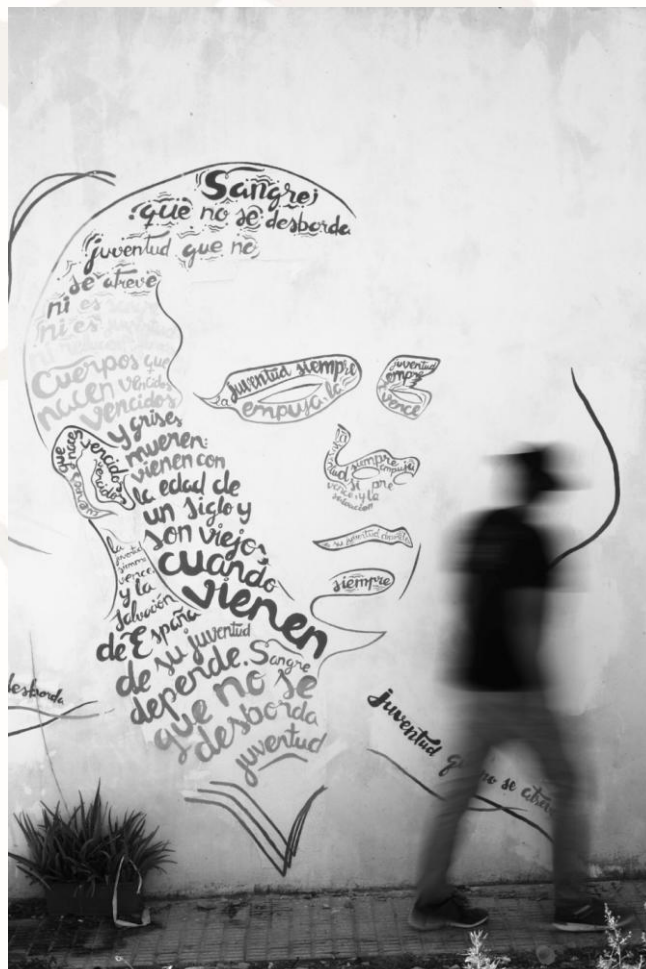 Sangre
que no se desborda
juventud que no
se atreve
ni es
ni es
Cuerpos que
nacen vencidos
vencidos
y grises
mueren:
vienen con
la edad de
un siglo y
son viejos
cuando
vienen
la juventud siempre
empuja la
juventud
empre
vence
siempre empuja
siempre
vence, y la
salvacion
de su juventud
siempre
que
nacen
vencidos
la
juventud
siempre
vence
y la
salvación
de España
de su juventud
depende. Sangre
que no se
desborda
juventud
desborda
juventud que no se atreve